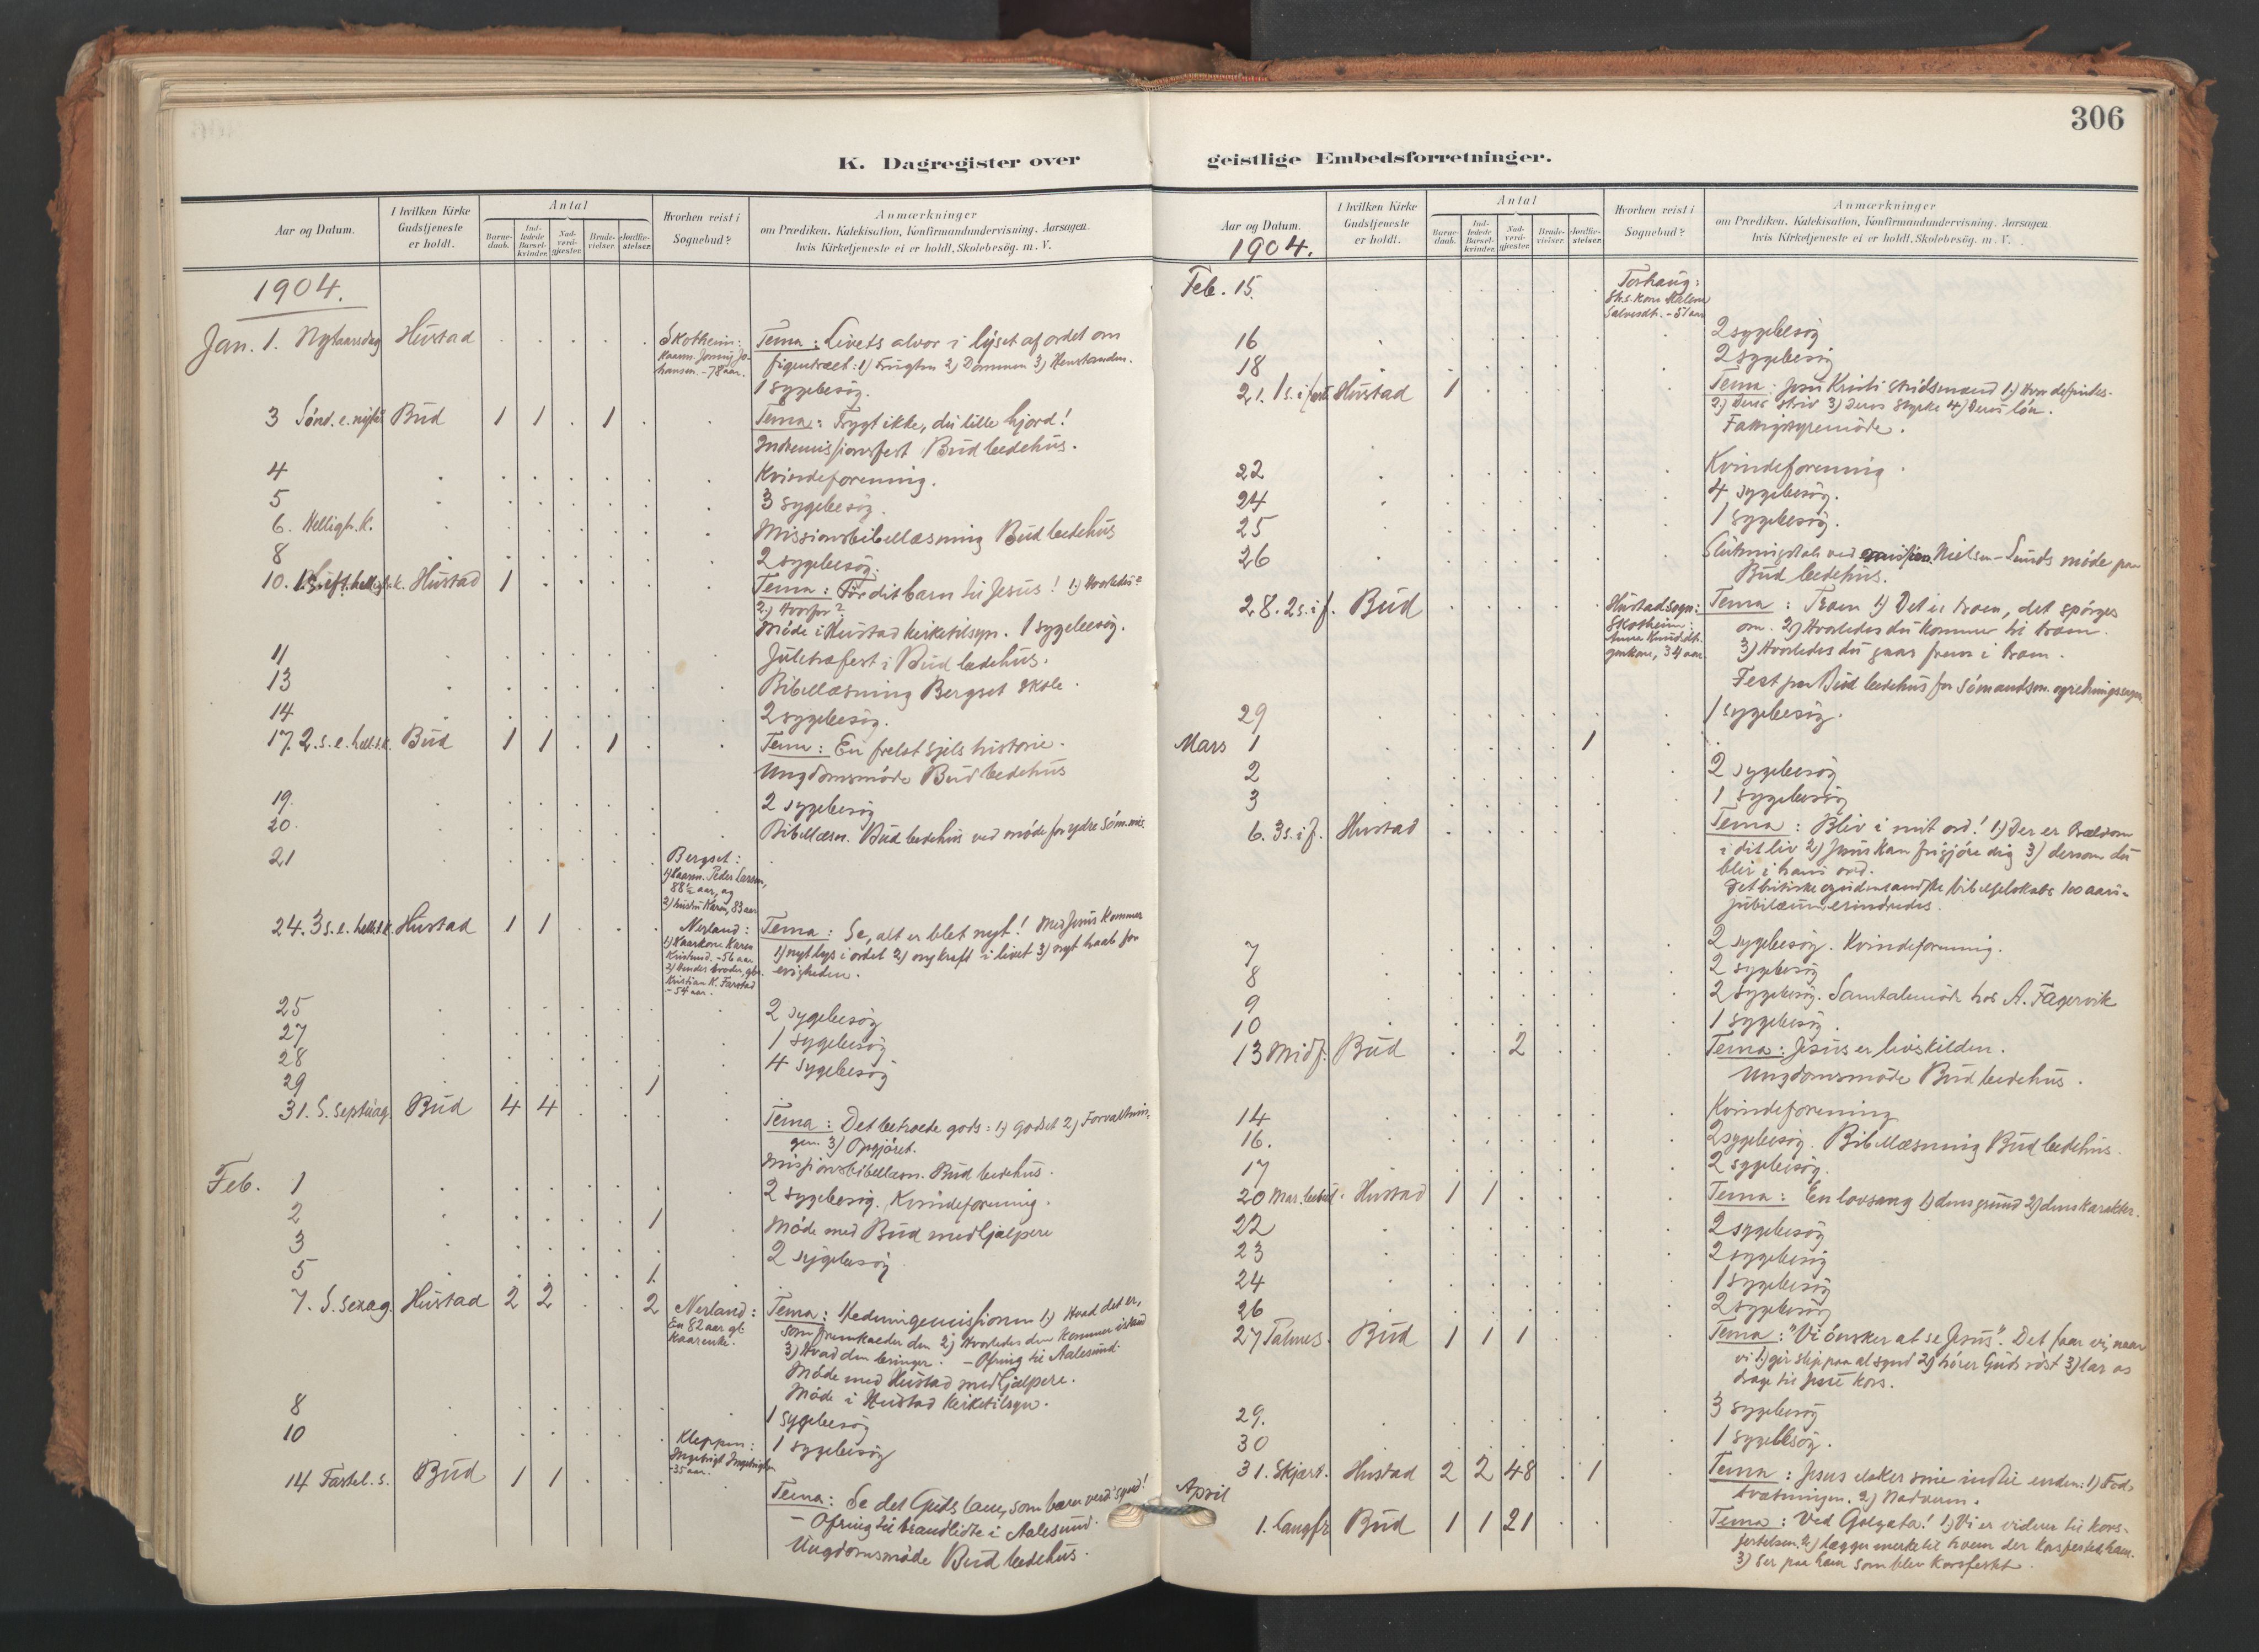 306
K. Dagregister over
Aar og Datum.
I hvilken Kirke Gudstjeneste er holdt.
Antal
Barnedaab.
Indledede Barselkvinder.
Nadverdgjæster.
Brudevielser.
Jordfæstelser.
Hvorhen reist i Sognebud?
Anmærkninger
om Prædiken, Katekisation, Konfirmandundervisning. Aarsagen
hvis Kirketjeneste ei er holdt, Skolebesøg. m. V.
1904.
Jan. 1. Nytaarsdag Hustad . . . . . Skotheim: Tema: Livets alvor i lyset af ordet om
Kaarm. Jonny Johansen. - 78 aar. figentræet: 1) Frugten 2) Dommen 3) Henstanden.
1 sygebesøg.
3 Sønd. e. nytår Bud 1 1 . 1 . . Tema: Frygt ikke, du lille hjord!
Indremissionsfest Bud bedehus.
4 . . . . . . . Kvindeforening.
5 . . . . . . . 3 sygebesøg.
6. Helligtr. k. . . . . . . Missionsbibellæsning Bud bedehus
8 . . . . . . . 2 sygebesøg.
10. 1 s. eft. helligtr. k. Hustad 1 . . . . . Tema: Før dit barn til Jesus! 1) Hvorledes?
2) Hvorfor?
Møde i Hustad kirketilsyn. 1 sygebesøg.
11 . . . . . . . Juletræfest i Bud bedehus.
13 . . . . . . . Bibellæsning Bergset skole.
14 . . . . . . . 2 sygebesøg.
17. 2. s. e. hell. 3 k. Bud 1 1 . 1 . . Tema: En frelst sjels historie.
Ungdomsmøde Bud bedehus
19. . . . . . . . 2 sygebesøg
20. . . . . . . . Bibellæsn. Bud bedehus ved møde for ydre Søm. mis.
21 . . . . . . Bergset: .
1) Kaarm. Peder Larsen,
88½ aar, og
2) hustru Karen, 83 aar
24. 3 s. e. hell. 3 k. Hustad 1 1 . . . Nerland: Tema: Se, alt er blet nyt! Med Jesus kommer
1) Kaarkone Karen 1) nyt lys i ordet 2) ny kraft i livet 3) nyt haab for
Kristind. - 56 aar evigheden.
2) Hendes broder, gbr.
Kristian K. Farstad
- 54 aar.
25 . . . . . . . 2 sygebesøg
27 . . . . . . . 1 sygebesøg
28 . . . . . . . 4 sygebesøg
29 . . . . . 1 .
31. S. septuag Bud 4 4 . . . . Tema: Det betroede gods: 1) Godset 2) Forvaltningen. 3) Opgjøret.
Missionsbibellæsn. Bud bedehus.
Feb. 1 . . . . . . . 2 sygebesøg. Kvindeforening.
2 . . . . . 1 . Møde med Bud medhjælpere
3 . . . . . . . 2 sygebesøg
5 . . . . . 1. .
7. S. sexag. Hustad 2 2 . . 2 Nerland: Tema: Hedningemissionen 1) Hvad det er,
En 82 aar gl. som fremkalder den 2) Hvorledes den kommer istand
kaarenke. 3) Hvad den bringer. - Ofring til Aalesund.
Møde med Hustad medhjælpere.
Møde i Hustad kirketilsyn.
8 . . . . . . . 1 sygebesøg
10 . . . . . . Kleppen: 1 sygebesøg
Ingebrigt Ingebrigtsen
- 35 aar.
14 Fastel. s. Bud 1 1 . . . Tema: Se det Guds lam, som bærer verds synd!
- Ofring til brandlidte i Aalesund.
Ungdomsmøde Bud bedehus.
geistlige Embedsforretninger.
Aar og Datum.
I hvilken Kirke Gudstjeneste er holdt.
Antal
Barnedaab.
Indledede Barselkvinder.
Nadverdgjæster.
Brudevielser.
Jordfæstelser.
Hvorhen reist i Sognebud?
Anmærkninger
om Prædiken, Katekisation, Konfirmandundervisning. Aarsagen
hvis Kirketjeneste ei er holdt, Skolebesøg. m. V.
1904.
Feb. 15. . . . . . . Torhaug:
Salvesdt. - 51 aar
16 . . . . . . . 2 sygebesøg
18 . . . . . . . 2 sygebesøg
21. 1 s. i fast. Hustad 1 . . . . . Tema: Jesu Kristi stridsmænd 1) Hvor de findes.
2) Deres strid 3) Deres styrke 4) Deres løn.
Fattigstyremøde.
22 . . . . . . . Kvindeforening.
24 . . . . . . . 4 sygebesøg.
25 . . . . . . . 1 sygebesøg.
26 . . . . . . . Slutningstale ved Nielsen-Lunds møde paa
Bud bedehus.
28. 2 s. i f. Bud . . . . . Hustad sogn: Tema: Troen 1) Det er troen, det spørges
Skotheim: om. 2) Hvorledes du kommer til troen.
Anne Knudsdt. 3) Hvorledes du gaar frem i troen.
34 aar Fest paa Bud bedehus for Sømandsm. og redningssagen
29 . . . . . . . 1 sygebesøg.
Mars 1 . . . . . 1 . .
2 . . . . . . . 2 sygebesøg
3 . . . . . . . 1 sygebesøg
6. 3 s. i f. Hustad . . . . . . Tema: Bliv i mit ord! 1) Der er trældom
i dit liv 2) Jesus kan frigjøre dig 3) dersom du
blir i hans ord.
Det britiske og udenlandske bibelselskabs 100 aars-
jubilæum erindredes.
7 . . . . . . . 2 sygebesøg. Kvindeforening.
8 . . . . . . . 2 sygebesøg
9 . . . . . . . 2 sygebesøg. Samtalemøde hos A. Fagervik
10 . . . . . . . 1 sygebesøg.
13 Midf. Bud . . 2 . . . Tema: Jesus er livskilden.
Ungdomsmøde Bud bedehus.
14 . . . . . . . Kvindeforening
16. . . . . . . . 2 sygebesøg. Bibellæsning Bud bedehus.
17 . . . . . . . 2 sygebesøg.
20 Mar. bebud. Hustad 1 1 . . . . Tema: En lovsang 1) dens grund 2) dens karakter.
22 . . . . . . . 2 sygebesøg
23 . . . . . . . 2 sygebesøg
24 . . . . . . . 1 sygebesøg
26 . . . . . . . 2 sygebesøg
27 Palmes. Bud 1 1 1 . . . Tema: "Vi ønsker at se Jesus". Det faar vi, naar
vi 1) gir slip paa al synd 2) hører Guds røst 3) lar os
drage til Jesu kors.
29. . . . . . . . 3 sygebesøg
30 . . . . . . . 1 sygebesøg.
31. Skjært. Hustad 2 2 48 . 1 . Tema: Jesus elsker sine indtil enden: 1) Fod-
tvætningen. 2) Nadveren.
April
1. Langfr. Bud 1 1 21 . . . Tema: Ved Golgata! 1) Vi er vidner til kors-
festelsen. 2) lægger merke til hvem der korsfestet ham.
3) Ser paa ham som blev korsfestet.